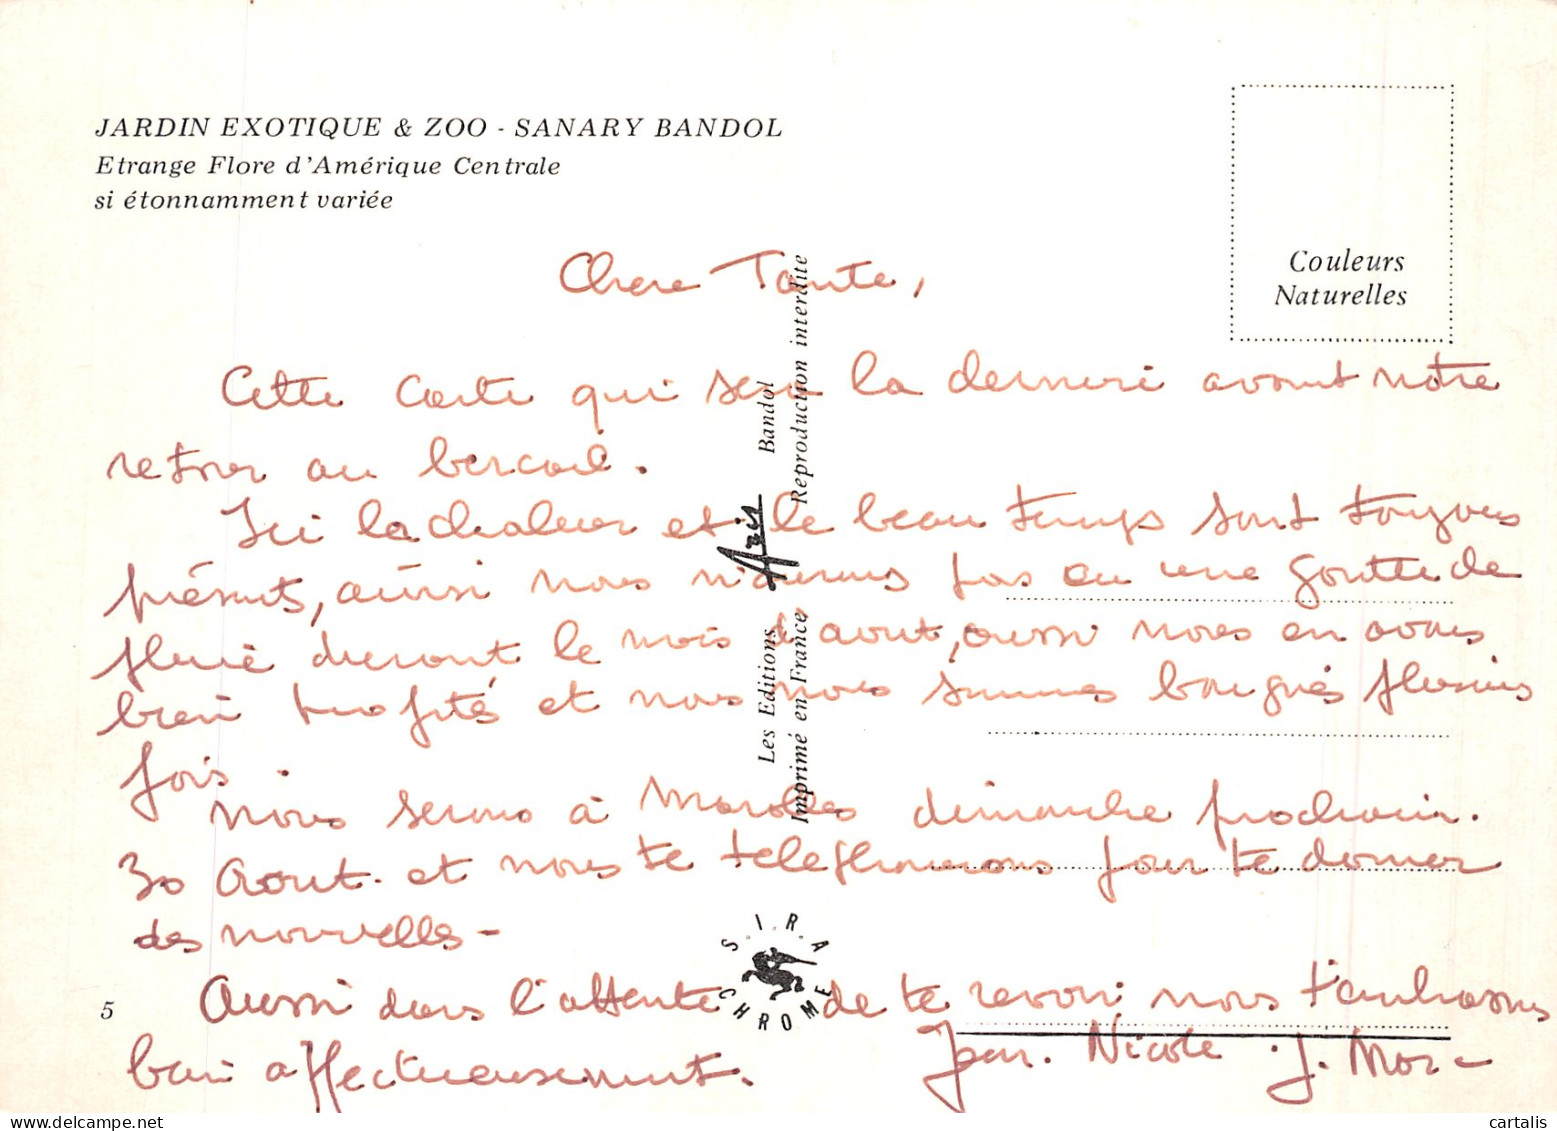 JARDIN EXOTIQUE & ZOO - SANARY BANDOL
Etrange Flore d'Amérique Centrale
si étonnamment variée
Couleurs
Naturelles
Chere Tante,
Cette carte qui sera la derniere avant notre
retour au bercail.
Ici la chaleur et le beau temps sont toujours
présents, ainsi nous n'aurons pas eu une goutte de
pluie durant le mois d'aout, aussi nous en avons
bien profités et nous nous sommes baignés plusieurs
fois.
nous serons à Marolles dimanche prochain.
30 Aout. et nous te telephonerons pour te donner
des nouvelles -
Aussi dans l'attente de te revoir nous t'embrassons
bien affectueusement.
Jean. Nicole. J. Marc
Les Editions Aris Bandol
Imprimé en France Reproduction interdite
S.I.R.A
CHROME
5
cartalis